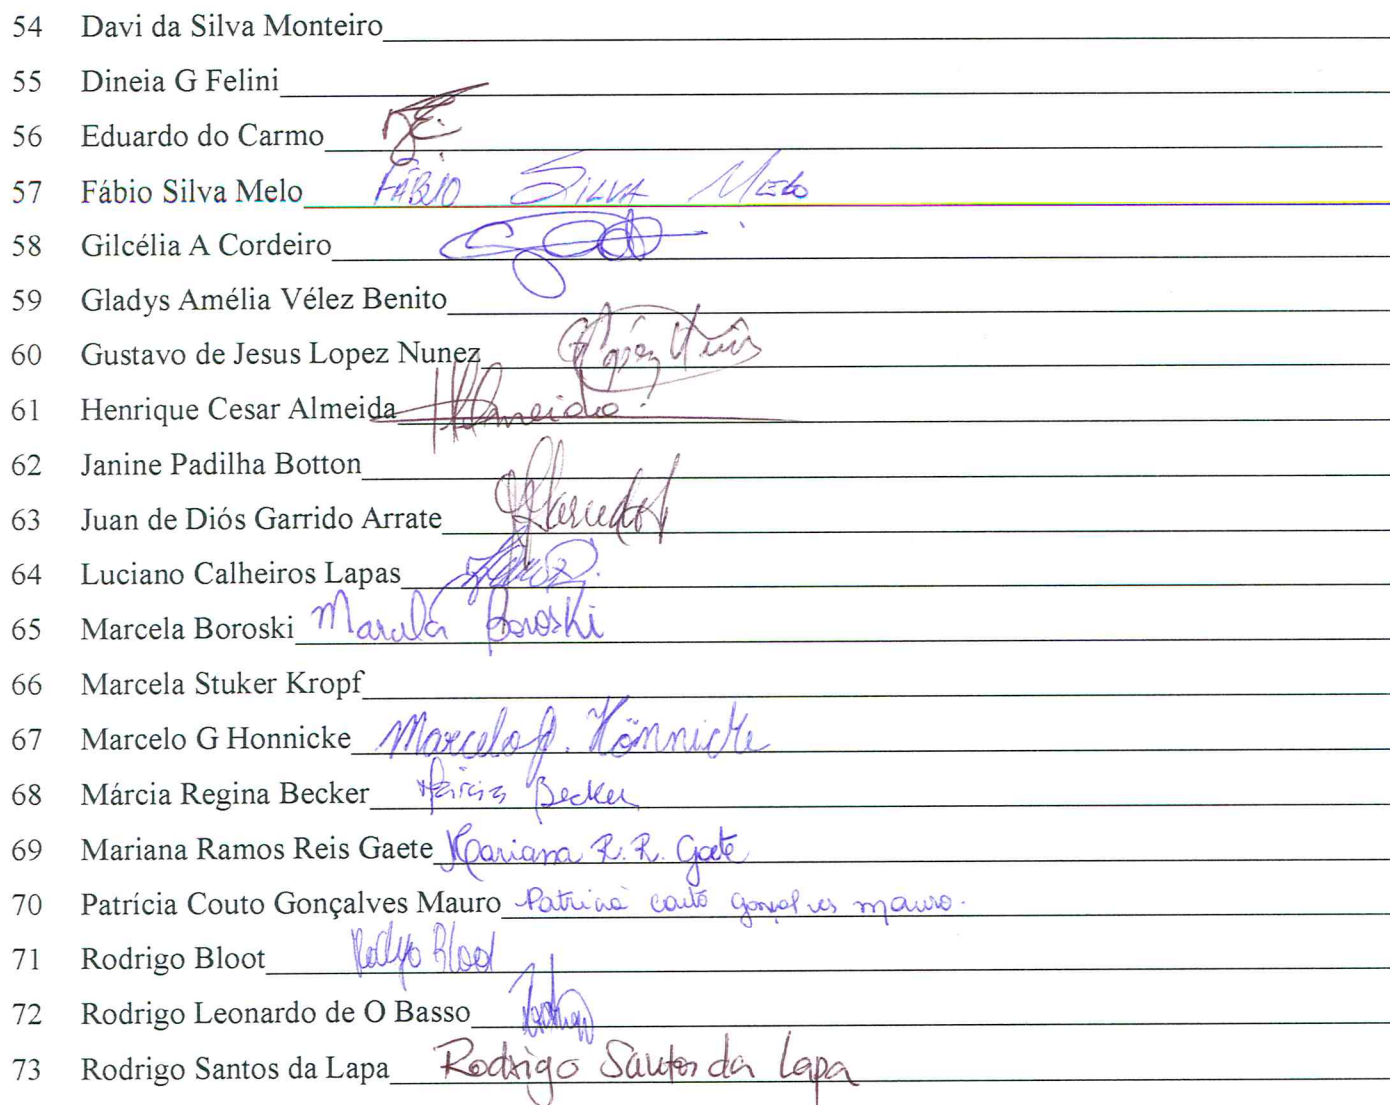 54 Davi da Silva Monteiro
55 Dineia G Felini
56 Eduardo do Carmo
57 Fábio Silva Melo FÁBIO SILVA MELO
58 Gilcélia A Cordeiro
59 Gladys Amélia Vélez Benito
60 Gustavo de Jesus Lopez Nunez
61 Henrique Cesar Almeida HAlmeida
62 Janine Padilha Botton
63 Juan de Diós Garrido Arrate
64 Luciano Calheiros Lapas
65 Marcela Boroski Marcela Boroski
66 Marcela Stuker Kropf
67 Marcelo G Honnicke Marcelo G. Hönnicke
68 Márcia Regina Becker Márcia Becker
69 Mariana Ramos Reis Gaete Mariana R. R. Gaete
70 Patrícia Couto Gonçalves Mauro Patricia couto gonçalves mauro.
71 Rodrigo Bloot Rodrigo Bloot
72 Rodrigo Leonardo de O Basso
73 Rodrigo Santos da Lapa Rodrigo Santos da Lapa